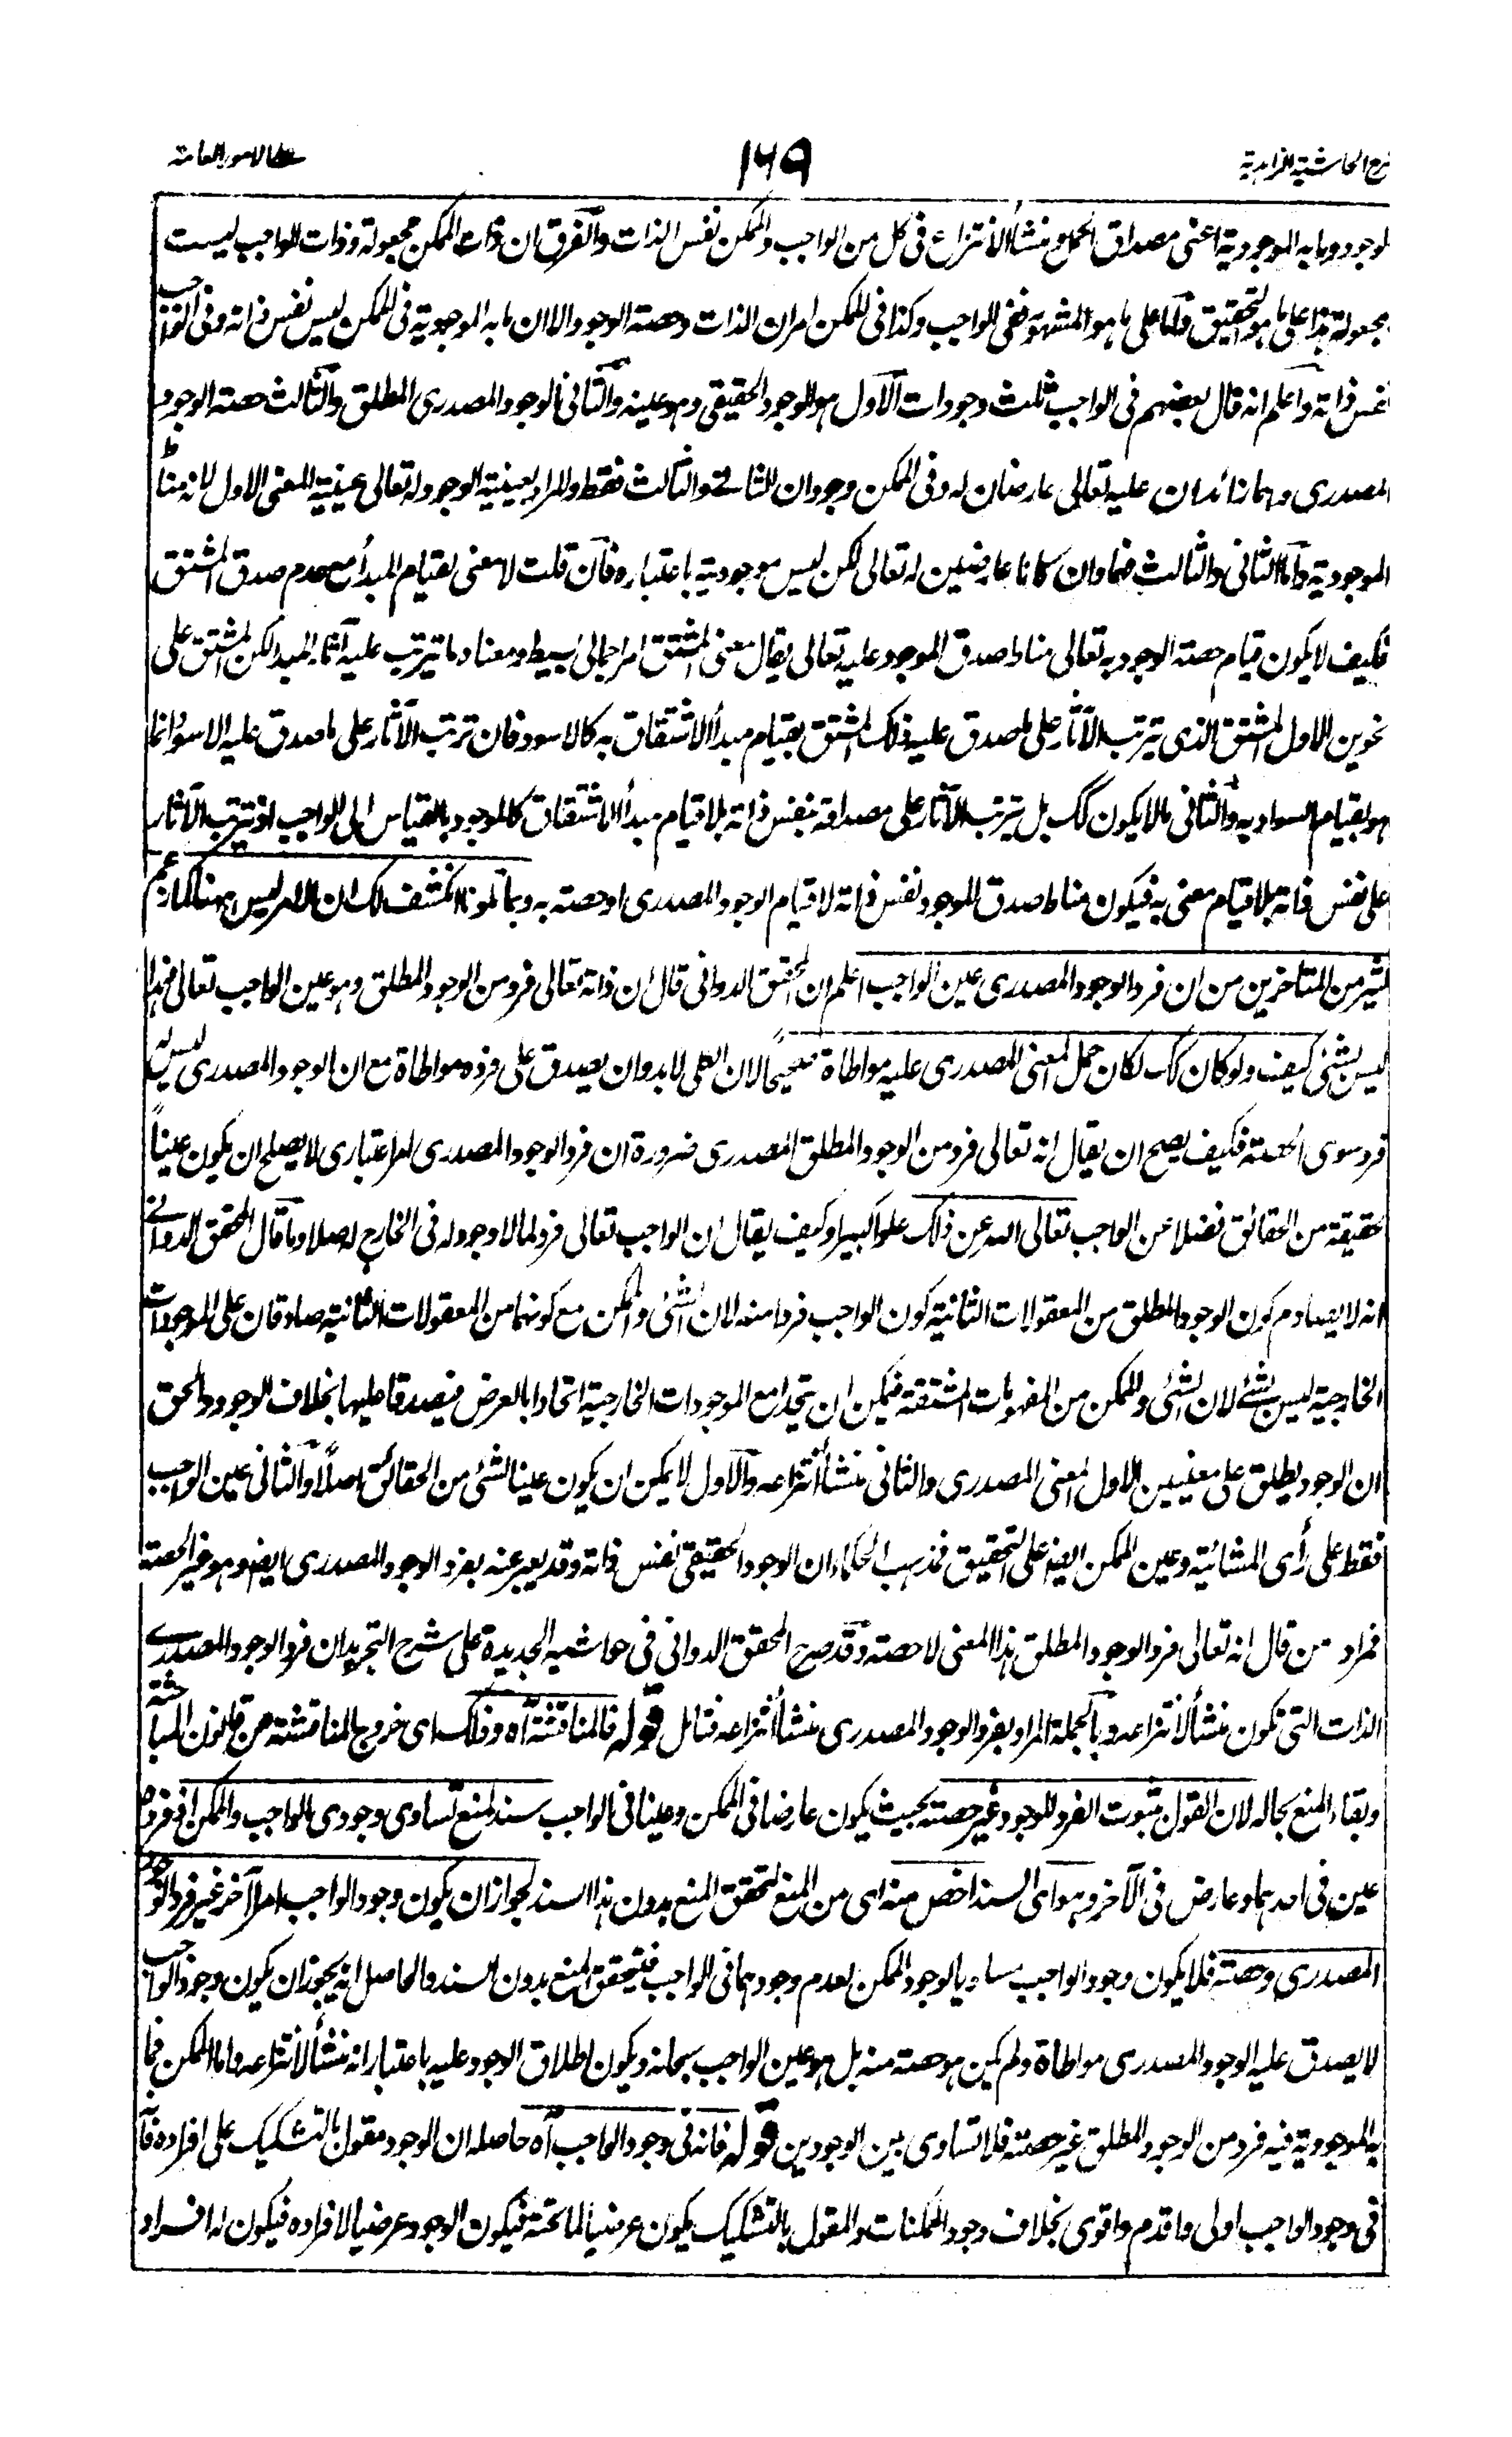 شرح الحاشية الزاهدية ١٤٩ على الامور العامة
لوجود وما به الموجودية اعنى مصداق الحمل ومنشأ الانتزاع فى كل من الواجب والممكن نفس الذات والفرق ان ذات الممكن مجعولة وذات الواجب ليست
مجعولة هذا على ما هو التحقيق واما على ما هو المشهور ففى الواجب وكذا فى الممكن امران الذات وحصة الوجود الا ان ما به الموجودية فى الممكن ليس نفس ذاته وفى الواجب
نفس ذاته واعلم انه قال بعضهم فى الواجب ثلث وجودات الاول هو الوجود الحقيقى وهو عينه والثانى الوجود المصدرى المطلق والثالث حصة الوجود
المصدرى وهما زائدان عليه تعالى عارضان له وفى الممكن وجودان الثانى والثالث فقط والمراد بعينية الوجود له تعالى عينية المعنى الاول لانه مناط
الموجودية واما الثانى والثالث فهما وان كانا عارضين له تعالى لكن ليس موجوديته باعتباره فان قلت لا معنى لقيام المبدأ مع عدم صدق المشتق
فكيف لا يكون قيام حصة الوجود به تعالى مناط صدق الموجود عليه تعالى يقال معنى المشتق امر اجمالى بسيط ومعناه ما يترتب عليه آثار المبدأ لكن المشتق على
نحوين الاول المشتق الذى يترتب الآثار على ما صدق عليه ذلك المشتق بقيام مبدأ الاشتقاق به كالاسود فان ترتب الآثار على ما صدق عليه الاسود انما
هو بقيام السواد به والثانى ما لا يكون كك بل يترتب الآثار على مصداقه بنفس ذاته بلا قيام مبدأ الاشتقاق كالموجود بالقياس الى الواجب اذ يترتب الآثار
على نفس ذاته بلا قيام معنى به فيكون مناط صدق الموجود نفس ذاته لا قيام الوجود المصدرى او حصته به وبما تلونا انكشف لك ان الامر ليس ههنا كما زعم
كثير من المتاخرين من ان فرد الوجود المصدرى عين الواجب اعلم ان المحقق الدوانى قال ان ذاته تعالى فرد من الوجود المطلق وهو عين الواجب تعالى فهذا
ليس بشئ كيف ولو كان كك لكان حمل المعنى المصدرى عليه مواطاة صحيحا لان الكلى لا بد وان يصدق على فرده مواطاة مع ان الوجود المصدرى ليس له
فرد سوى الحصة فكيف يصح ان يقال انه تعالى فرد من الوجود المطلق المصدرى ضرورة ان فرد الوجود المصدرى امر اعتبارى لا يصلح ان يكون عيناً
لحقيقة من الحقائق فضلا عن الواجب تعالى الله عن ذلك علوا كبيرا وكيف يقال ان الواجب تعالى فرد لما لا وجود له فى الخارج اصلا وما قال المحقق الدوانى
انه لا يصادم كون الوجود المطلق من المعقولات الثانية كون الواجب فردا منه لان الشئ والممكن مع كونهما من المعقولات الثانية صادقان على الموجودات
الخارجية ليس بشئ لان الشئ والممكن من المفهومات المشتقة فيمكن ان يتحدا مع الموجودات الخارجية اتحادا بالعرض فيصدقا عليها بخلاف الوجود والحق
ان الوجود يطلق على معنيين الاول المعنى المصدرى والثانى منشأ انتزاعه والاول لا يمكن ان يكون عينا لشئ من الحقائق اصلاً والثانى عين الواجب
فقط على رأى المشائية وعين الممكن ايضا على التحقيق فمذهب الحكماء ان الوجود الحقيقى نفس ذاته وقد يعبر عنه بفرد الوجود المصدرى ايضا وهو غير الحصة
فمراد من قال انه تعالى فرد الوجود المطلق هذا المعنى لا حصته وقد صرح المحقق الدوانى فى حواشيه الجديدة على شرح التجريد ان فرد الوجود المصدرى
الذات التى تكون منشأ لانتزاعه وبالجملة المراد بفرد الوجود المصدرى منشأ انتزاعه فتامل قوله فالمناقشة آه وذلك اى خروج المناقشة عن قانون المباحثة
وبقاء المنع بحاله لان القول بثبوت الفرد للوجود غير حصته بحيث يكون عارضا فى الممكن وعينا فى الواجب سند لمنع تساوى وجودى الواجب والممكن اذ فرده
عين فى احدهما وعارض فى الآخر وهو اى السند اخص منه اى من المنع لتحقق المنع بدون هذا السند لجواز ان يكون وجود الواجب امرا آخر غير فرد الوجود
المصدرى وحصته فلا يكون وجود الواجب مساويا لوجود الممكن لعدم وجودهما فى الواجب فيتحقق المنع بدون السند والحاصل انه يجوز ان يكون وجود الواجب
لا يصدق عليه الوجود المصدرى مواطاة ولم يكن هو حصته منه بل هو عين الواجب سبحانه ويكون اطلاق الوجود عليه باعتبار انه منشأ لانتزاعه واما الممكن فما
به الموجودية فيه فرد من الوجود المطلق غير حصته فلا تساوى بين الوجودين قوله فانه فى وجود الواجب آه حاصله ان الوجود مقول بالتشكيك على افراده فانه
فى وجود الواجب اولى واقدم واقوى بخلاف وجود الممكنات والمقول بالتشكيك يكون عرضيا لما تحته فيكون الوجود عرضيا لافراده فيكون له افراد